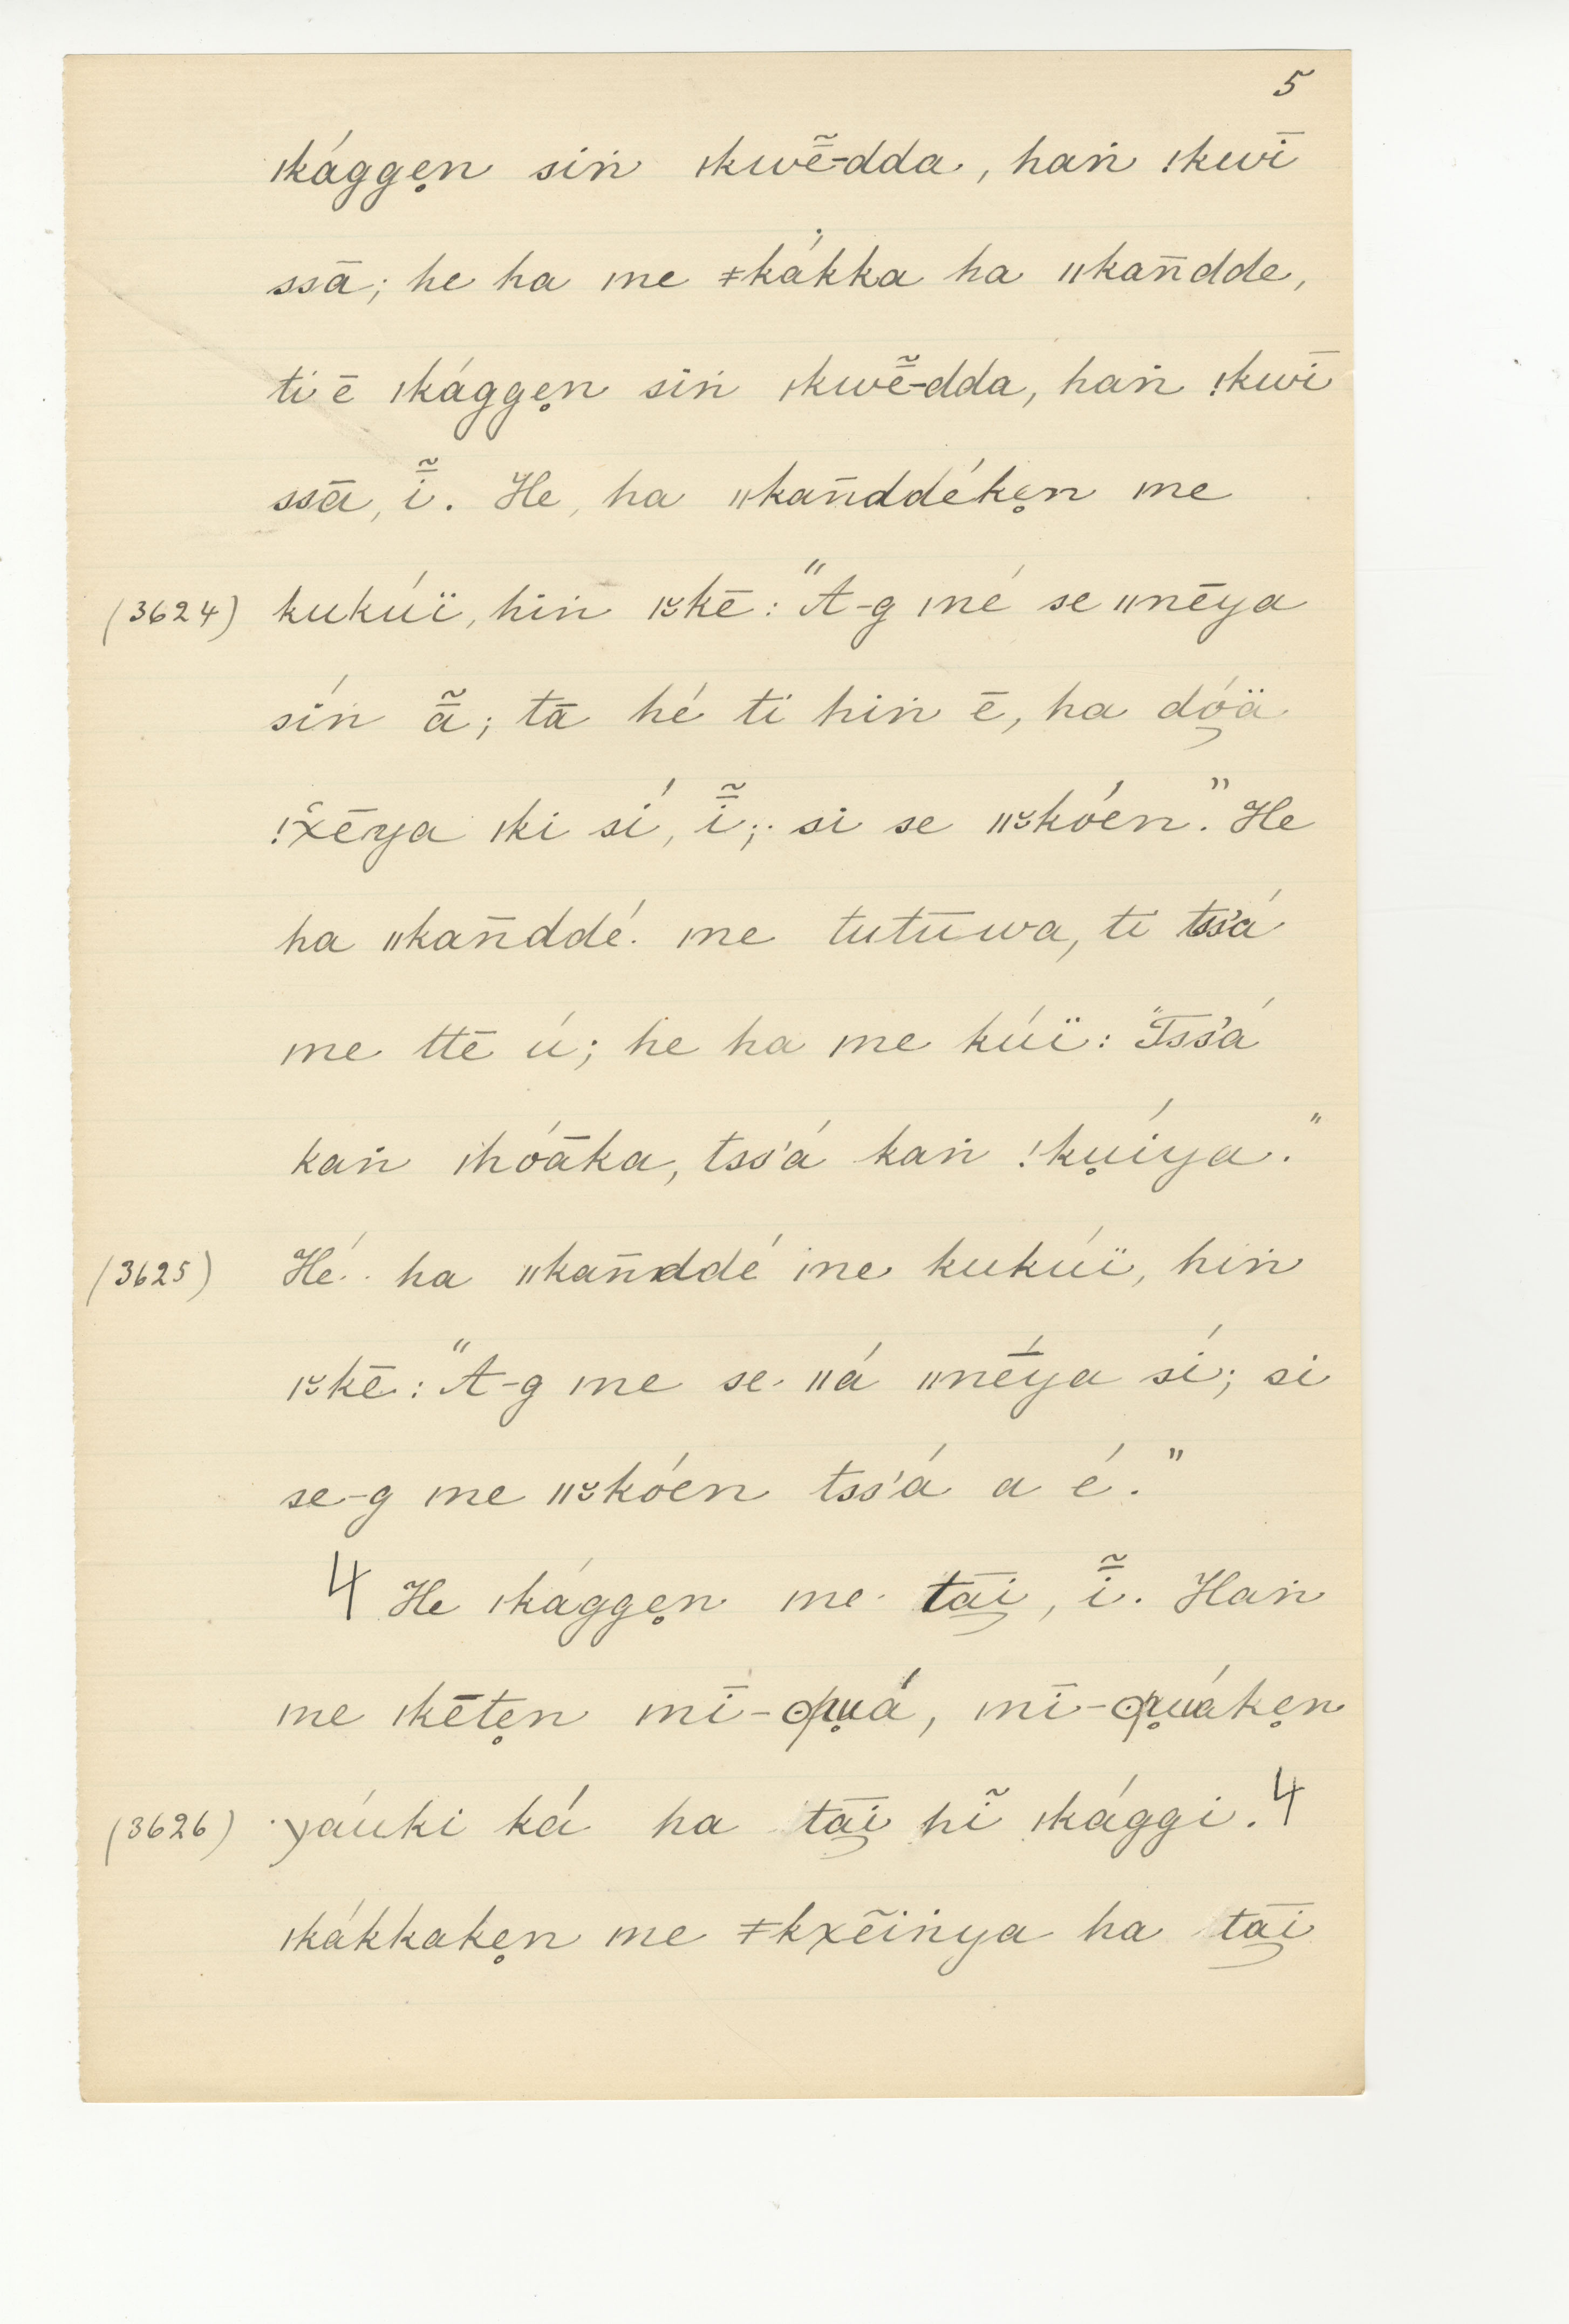 5
ǀkággen̥ siṅ ǀkwẽ̄-dda, haṅ ǃkwī
ssā; he ha ǀne ǂkákka ha ǁkan̄dde,
ti ē ǀkággen̥ siṅ ǀkwẽ̄-dda, haṅ ǃkwī
ssā, ĩ̄. He, ha ǁkan̄ddéken̥ ǀne
(3624) kukúï, hiṅ ǀ꜕kē: "A-g ǀné se ǁnēya
síṅ ã̄; tā hé ti hiṅ ē, ha dóä
ǃx̆ēya ǀki sí, ĩ̄; si se ǁ꜕kóen." He
ha ǁkan̄ddé ǀne tutūwa, ti tss'á
ǀne ttē ú; he ha ǀne kúï: "Tss'á
kaṅ ǀhóāka, tss'á kaṅ ǃku̥íya."
(3625) Hé ha ǁkan̄ddé ǀne kukúï, hiṅ
ǀ꜕kē: "A-g ǀne se ǁá ǁnḗya sí; si
se-g ǀne ǁ꜕kóen tss'á a é."
4 He ǀkággen̥ ǀne tāī, ĩ̄. Haṅ
ǀne ǀkēten̥ mī-ʘpu̥á, mī-ʘpu̥áken̥
(3626) yáuki ká ha tāī hĩ ǀkággi. 4
ǀkákkaken̥ ǀne ǂkxẽiṅya ha tāī